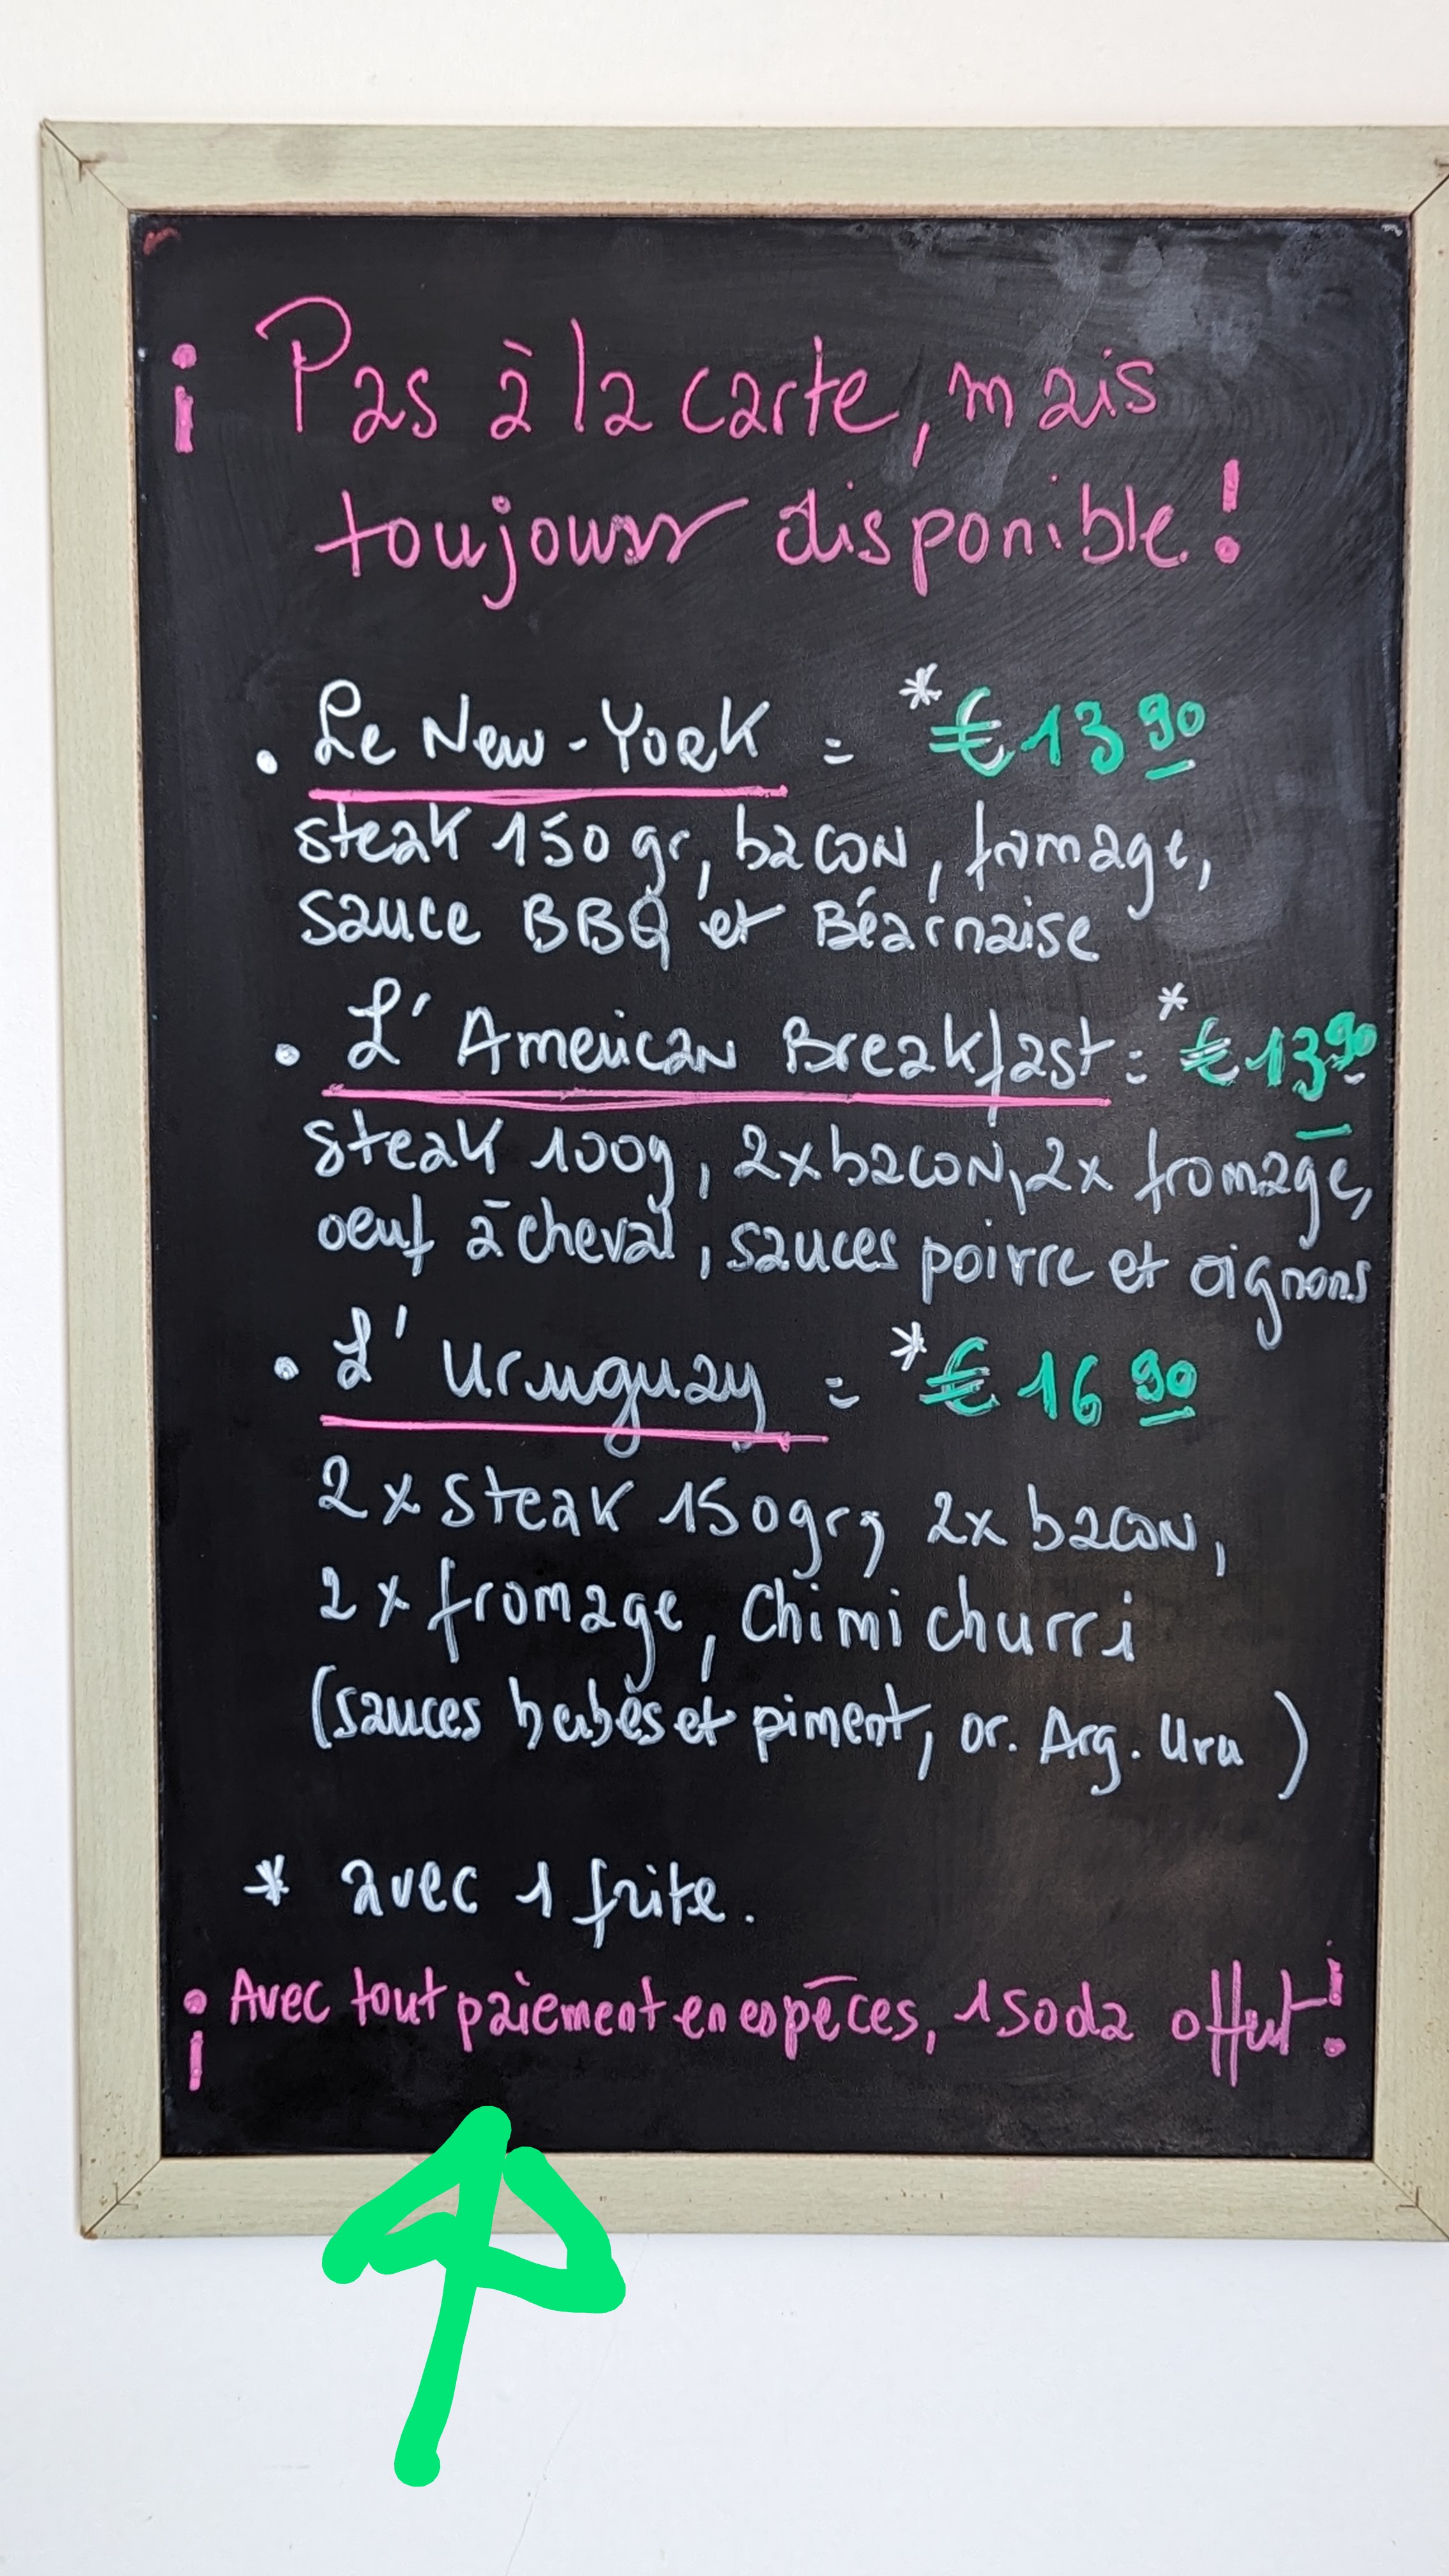 ¡ Pas à la carte, mais
toujours disponible !
• Le New-York = *€13 90
steak 150 gr, bacon, fromage,
sauce BBQ et Béarnaise
• L' American Breakfast = *€13 90
steak 100g, 2x bacon, 2x fromage,
oeuf à cheval, sauces poivre et oignons
• L' Uruguay = *€16 90
2 x steak 150gr, 2x bacon,
2 x fromage, Chimi churri
(sauces herbes et piment, or. Arg. Uru )
* avec 1 frite.
¡ Avec tout paiement en espèces, 1 soda offert !